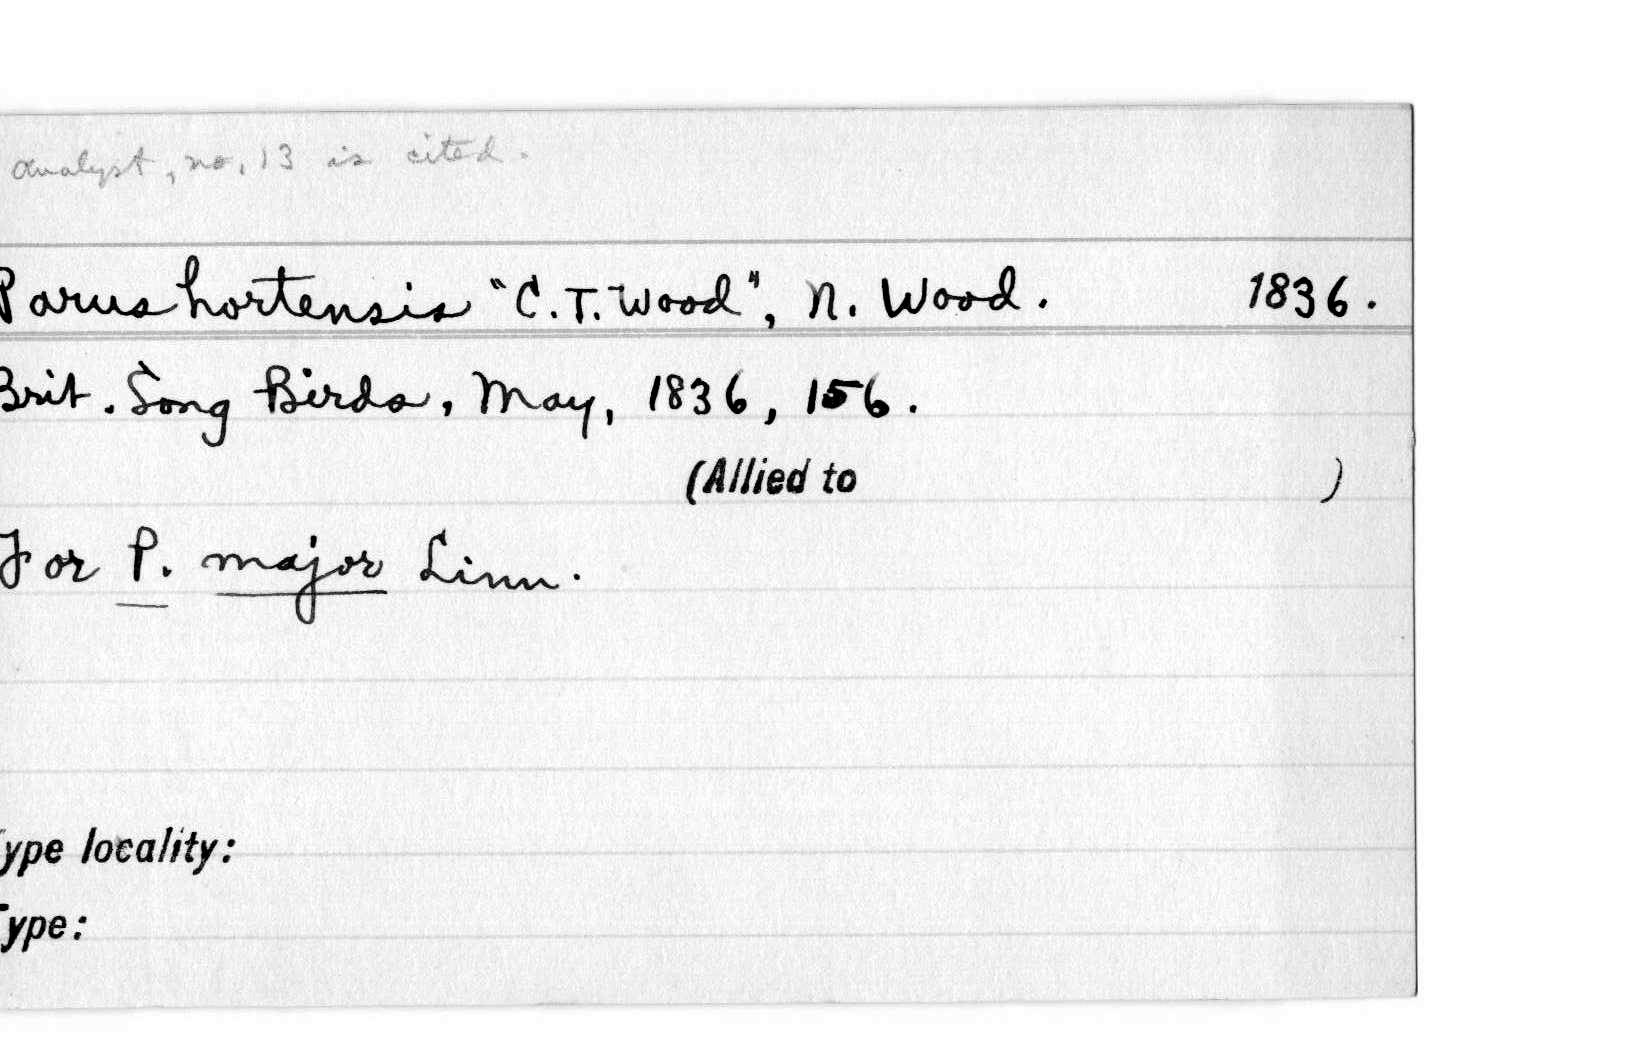 analyst, no. 13 is cited.
Parus hortensis "C.T. Wood", N. Wood. 1836.
Brit. Song Birds, May, 1836, 156.
(Allied to )
For P. major Linn.
Type locality:
Type: